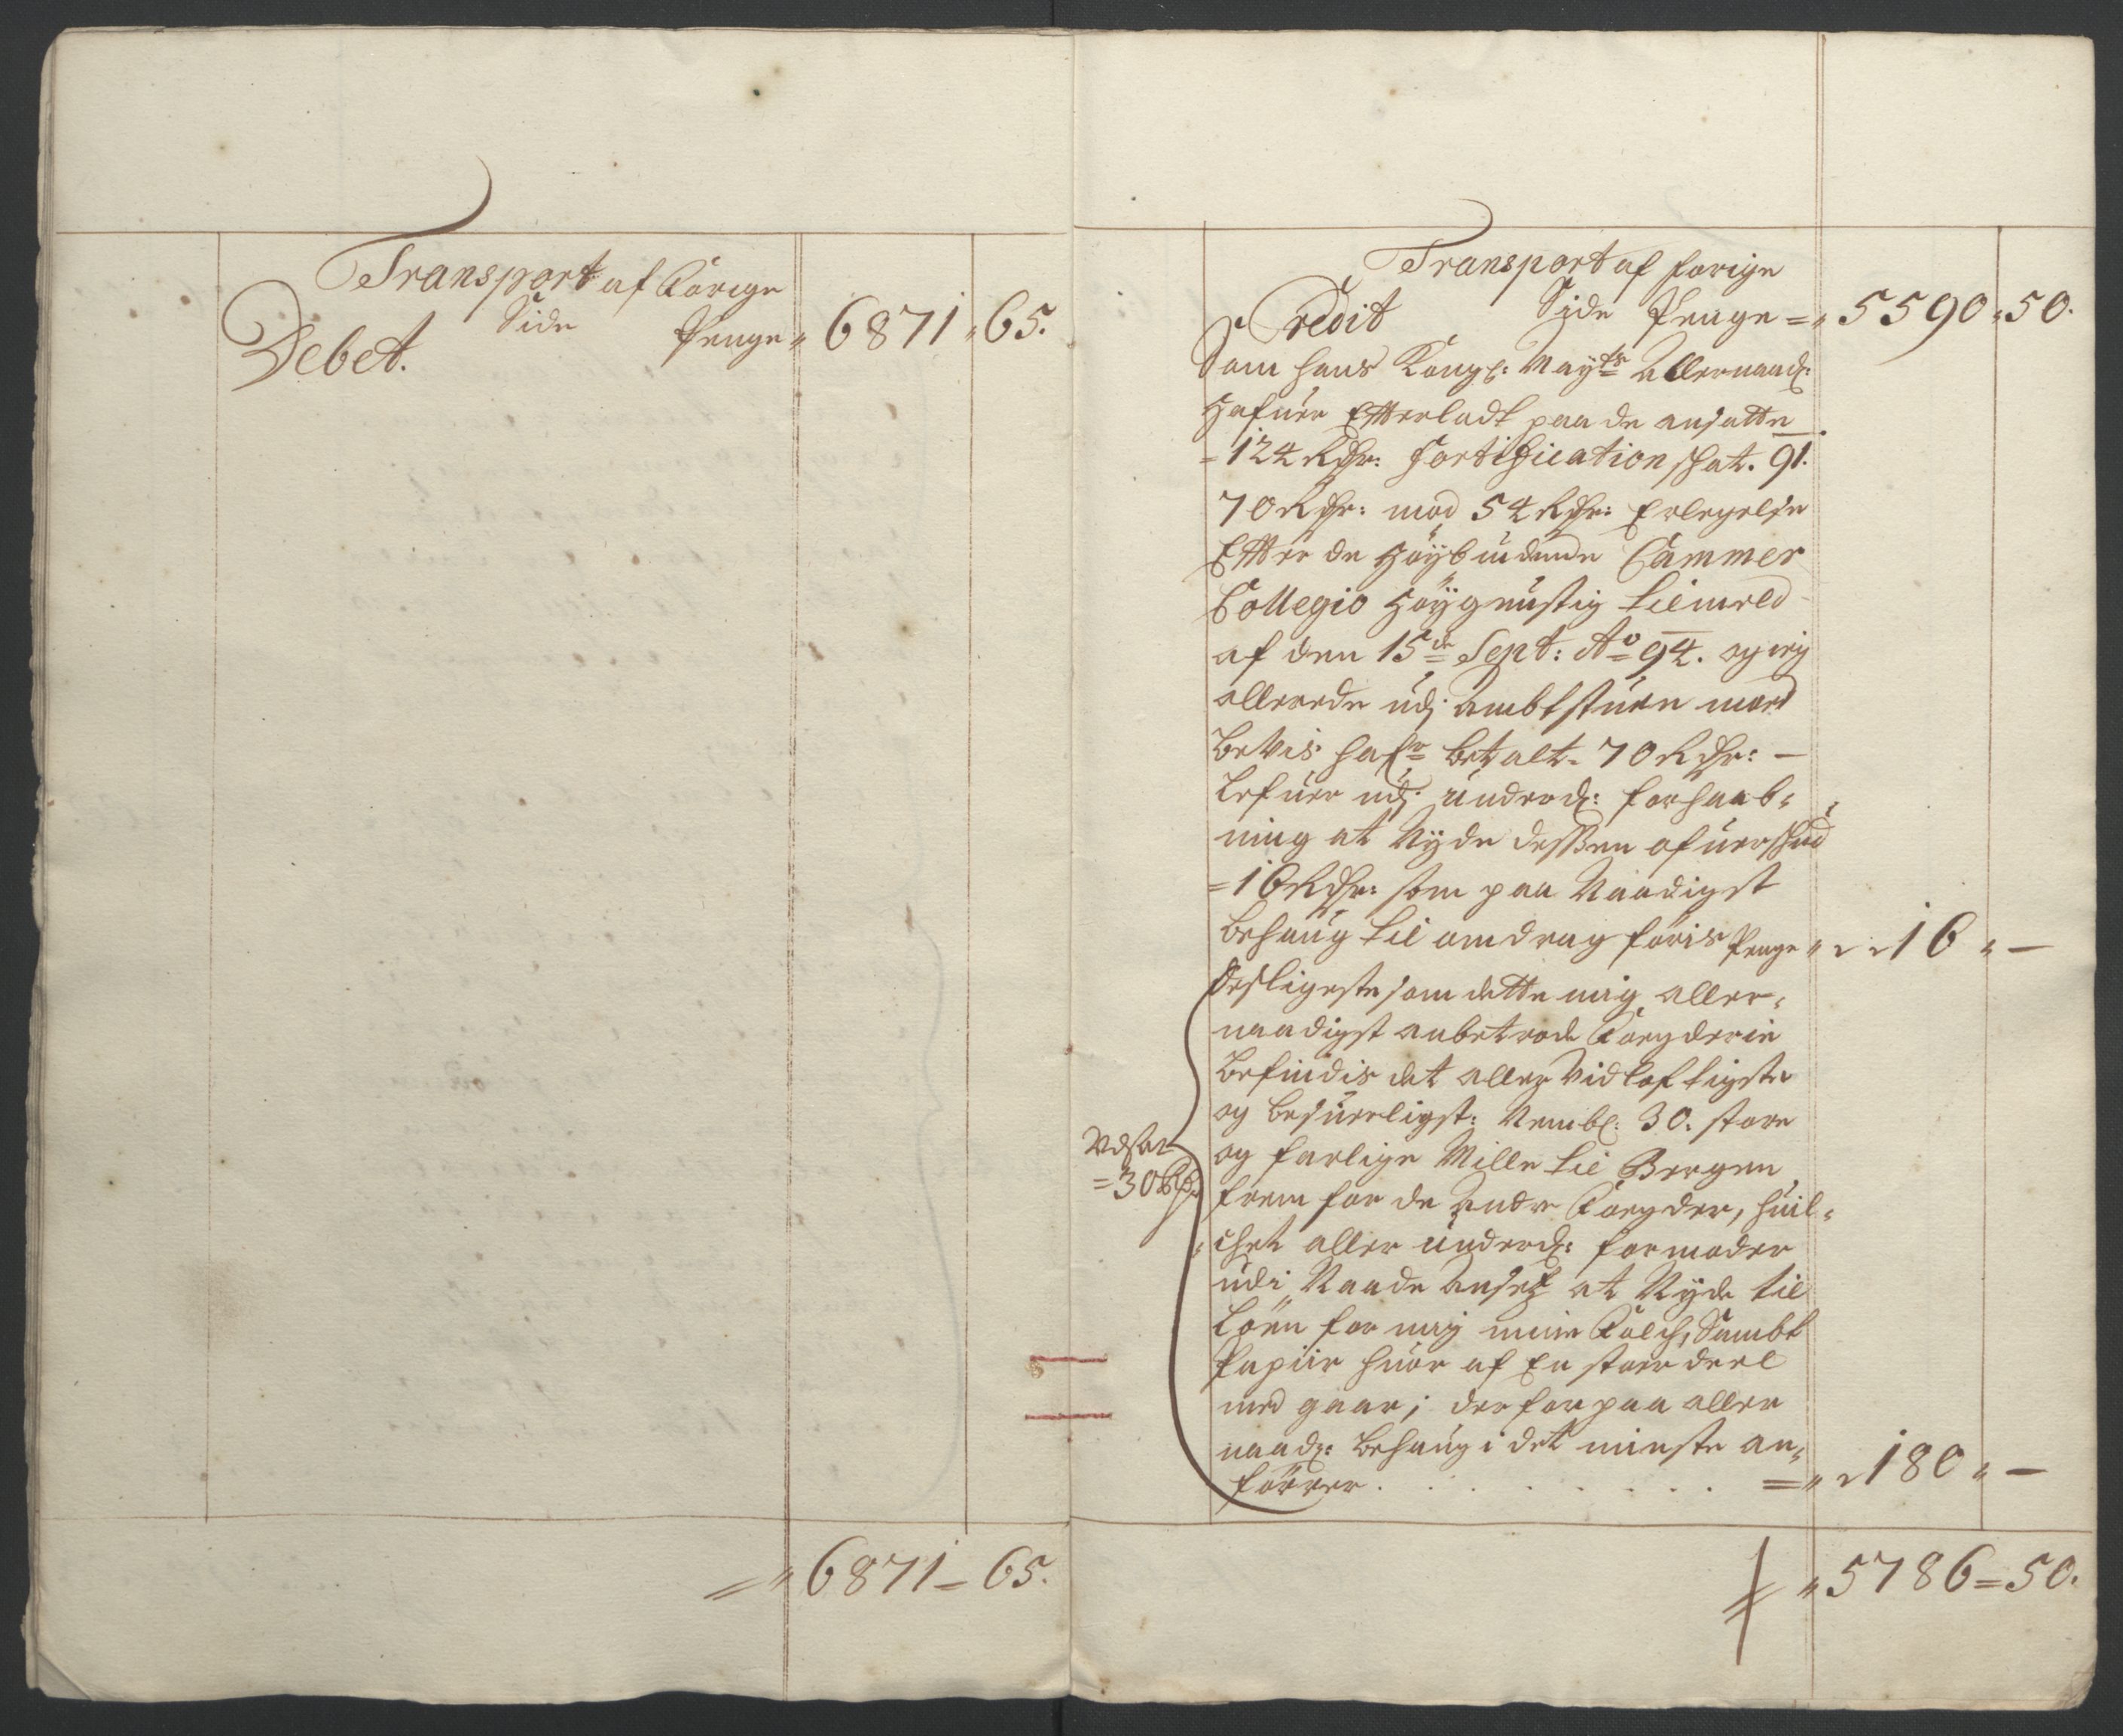 Transport af Forige
Side Penge " 6871 " 65.
Debet.
= " 6871 = 65.
Transport af forige
Credit Side Penge = " 5590 " 50.
Som hans Kongl: Mayts Allernaadl:
Hafuer Efterladt paa de ansatte
= 124 Rdr: Fortification Schat. 91.
70 Rdr: mod 54 Rdr: Erlegelse
Efter de Høybiudende Cammer
Collegio Høygunstig
af den 15de Sept: Ao 94. og ieg
allerede udj Ambtstuen med
bevis hafr betalt. 70 Rdr: —
Lefuer udj underd: forhaab-
ning at Nyde dessen ofuerskud
= 16 Rdr: som paa Naadigst
behaug til omdrag føris Penge " " " 16 " —
Desligeste som dette mig aller-
naadigst anbetrode Fogderie
befindis det aller Vidtløftigste
og besuerligst: Nembl: 30. store
og farlige Mille til Bergen
frem for de andre Fogder, huil-
chet aller underd: formoder
udi Naade anseet at Nyde til
Løen for mig mine Folch, Sambt
Papiir huor af En stoer deel
med gaar; derfor paa aller
naad: behaug i det minste an-
förrer . . . . . . . . = " " 180 " —
Udsat
= 30 Rdr
= " 5786 = 50.